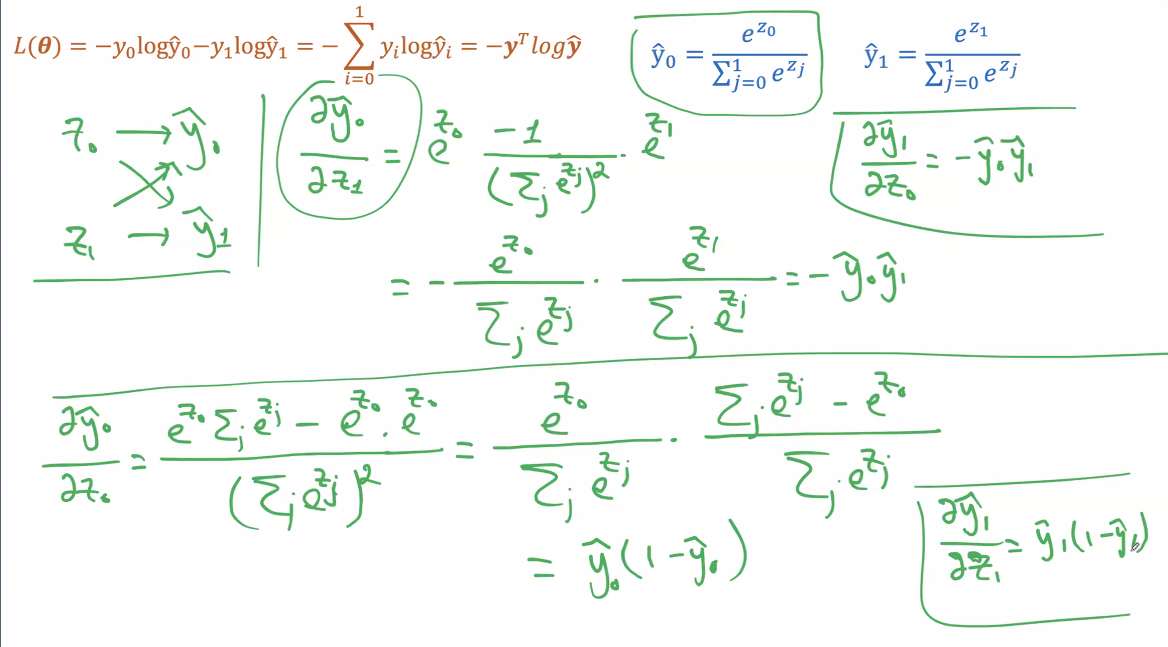 L(θ) = −y₀logŷ₀−y₁logŷ₁ = −∑_{i=0}^{1} yᵢlogŷᵢ = −𝒚ᵀlogŷ
ŷ₀ = e^{z₀} / ∑_{j=0}^{1} e^{z_j}
ŷ₁ = e^{z₁} / ∑_{j=0}^{1} e^{z_j}
z₀ → ŷ₀
z₁ → ŷ₁
∂ŷ₀/∂z₁ = e^{z₀} −1/(∑_j e^{z_j})² · e^{z₁}
= − e^{z₀}/∑_j e^{z_j} · e^{z₁}/∑_j e^{z_j} = −ŷ₀ŷ₁
∂ŷ₁/∂z₀ = −ŷ₀ŷ₁
∂ŷ₀/∂z₀ = (e^{z₀} ∑_j e^{z_j} − e^{z₀} · e^{z₀}) / (∑_j e^{z_j})² = e^{z₀}/∑_j e^{z_j} · (∑_j e^{z_j} − e^{z₀})/∑_j e^{z_j}
= ŷ₀(1−ŷ₀)
∂ŷ₁/∂z₁ = ŷ₁(1−ŷ₁)